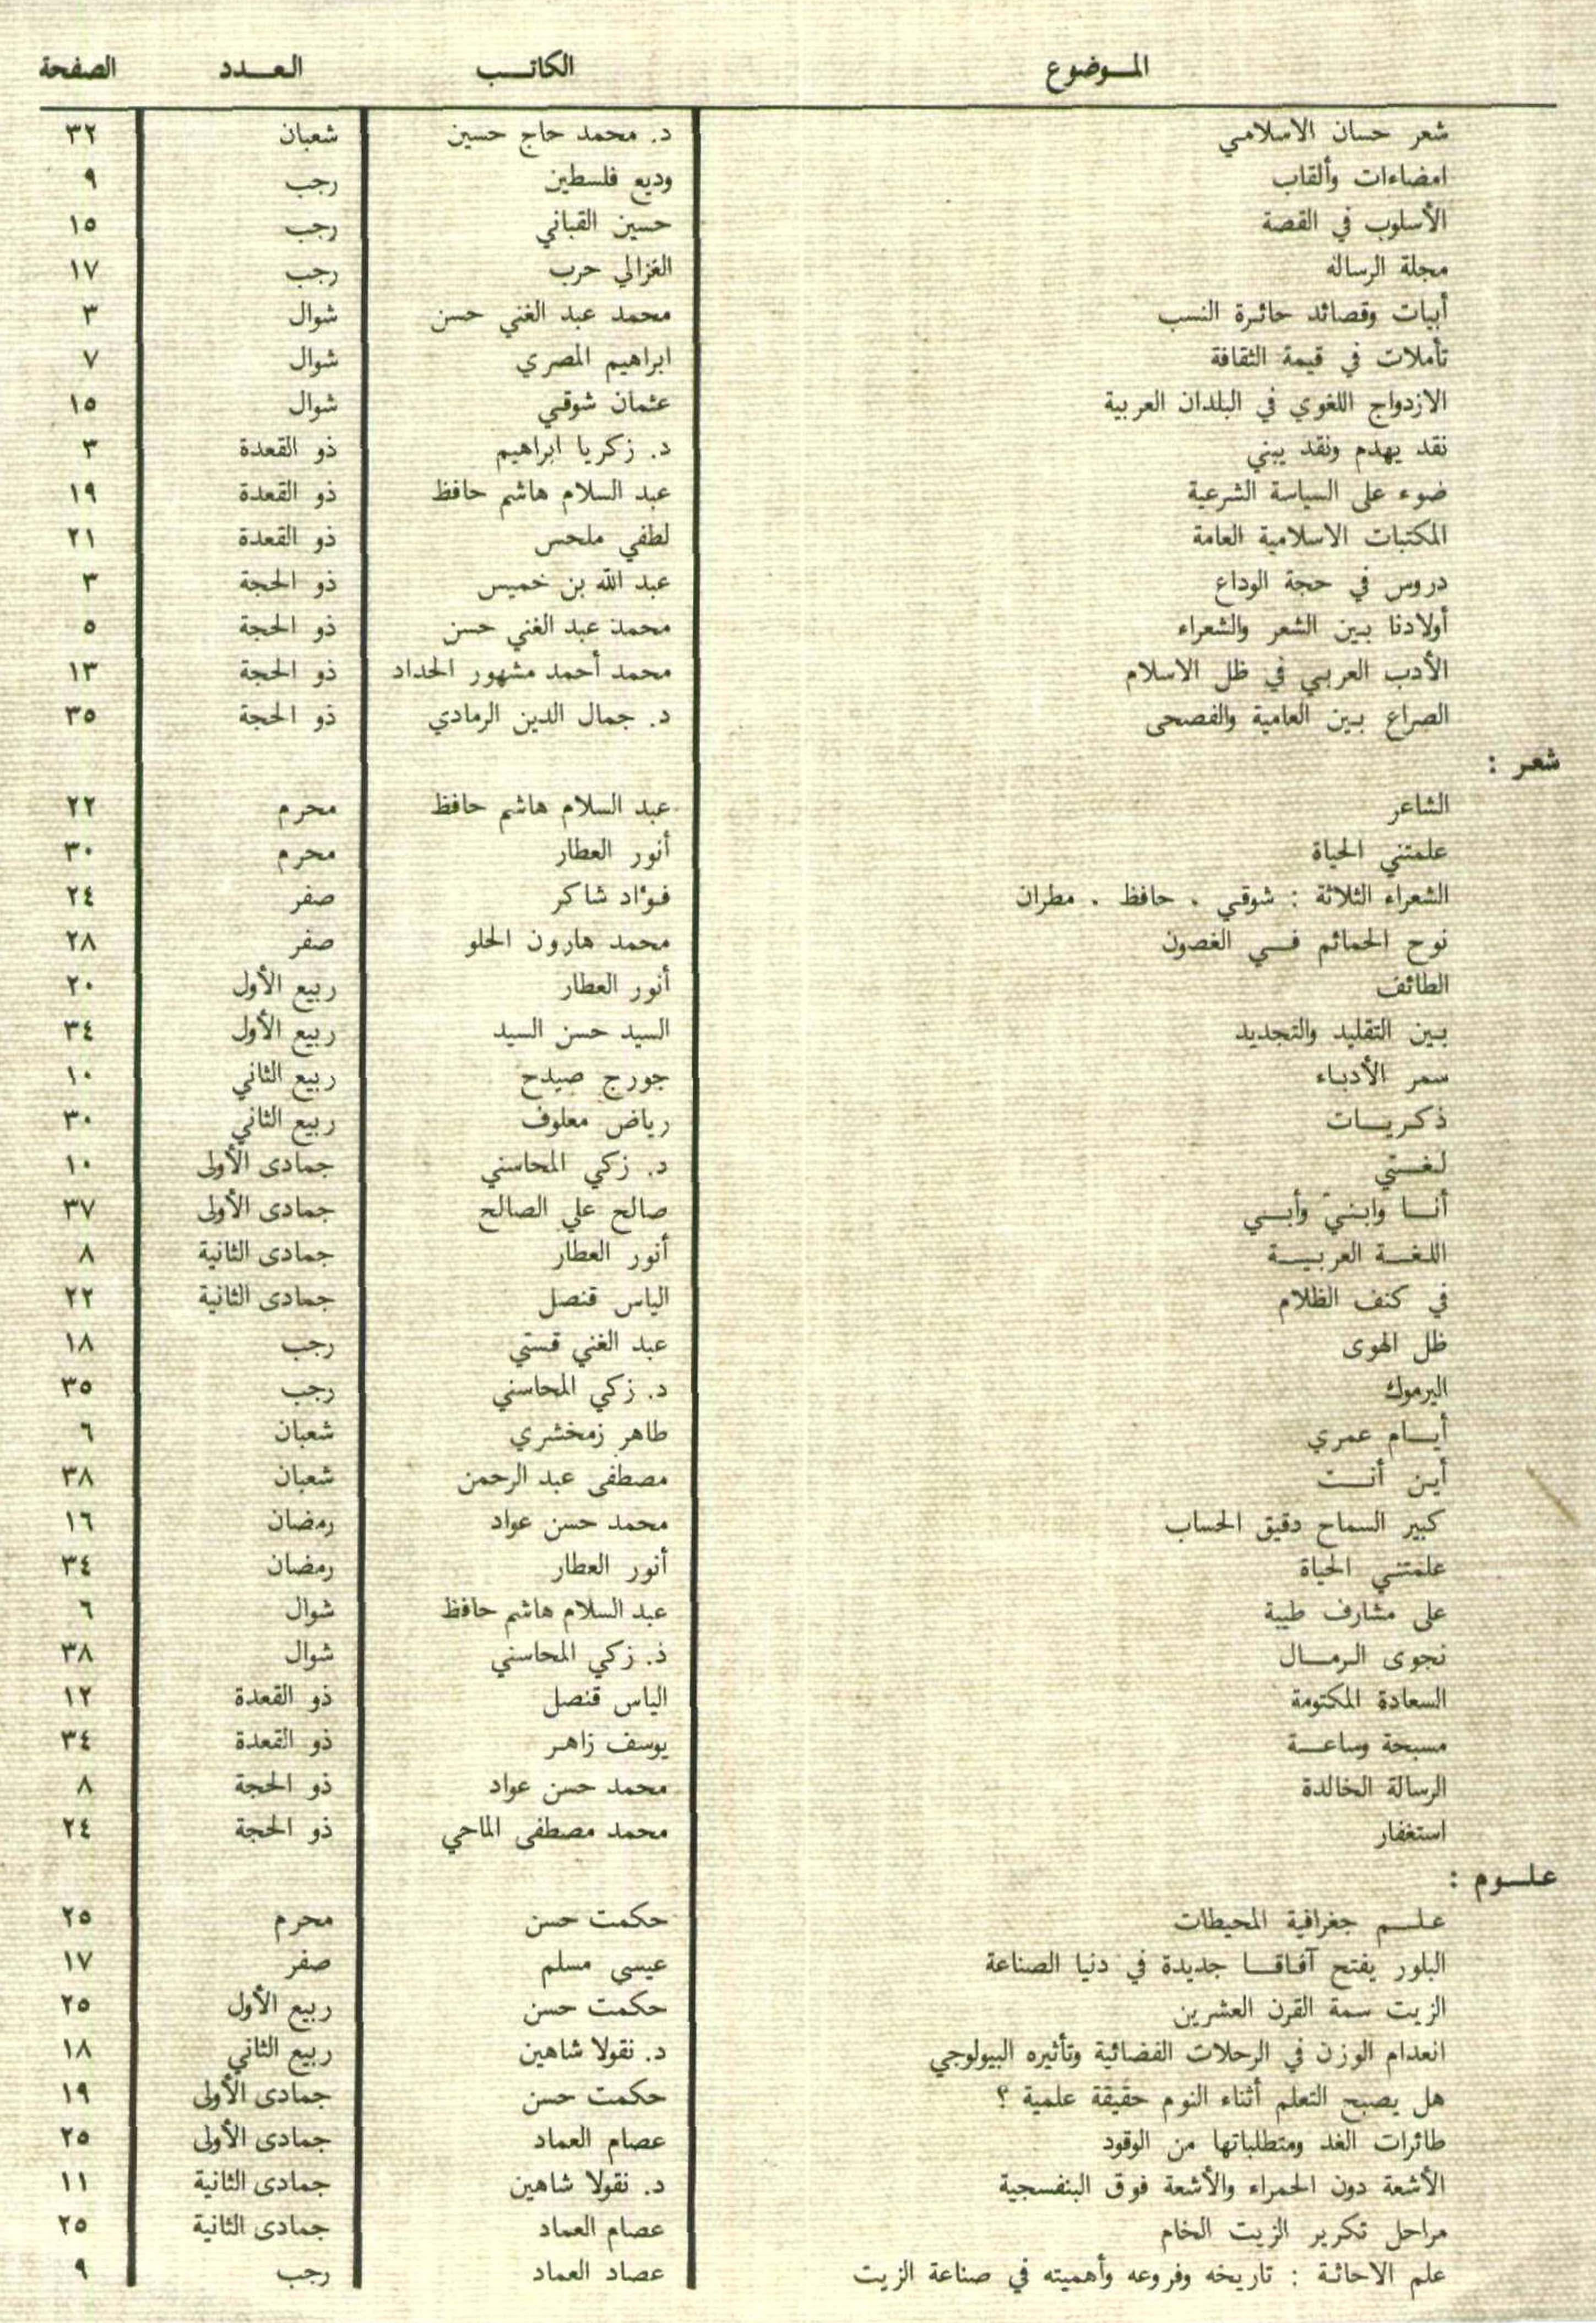 الموضوع الكاتب العدد الصفحة
شعر حسان الاسلامي د. محمد حاج حسين شعبان ٣٢
امضاءات وألقاب وديع فلسطين رجب ٩
الأسلوب في القصة حسين القباني رجب ١٥
مجلة الرسالة الغزالي حرب رجب ١٧
أبيات وقصائد حائرة النسب محمد عبد الغني حسن شوال ٣
تأملات في قيمة الثقافة ابراهيم المصري شوال ٧
الازدواج اللغوي في البلدان العربية عثمان شوقي شوال ١٥
نقد يهدم ونقد يبني د. زكريا ابراهيم ذو القعدة ٣
ضوء على السياسة الشرعية عبد السلام هاشم حافظ ذو القعدة ١٩
المكتبات الاسلامية العامة لطفي ملحس ذو القعدة ٢١
دروس في حجة الوداع عبد الله بن خميس ذو الحجة ٣
أولادنا بين الشعر والشعراء محمد عبد الغني حسن ذو الحجة ٥
الأدب العربي في ظل الاسلام محمد أحمد مشهور الحداد ذو الحجة ١٣
الصراع بين العامية والفصحى د. جمال الدين الرمادي ذو الحجة ٣٥
شعر :
الشاعر عبد السلام هاشم حافظ محرم ٢٢
علمتني الحياة أنور العطار محرم ٣٠
الشعراء الثلاثة : شوقي . حافظ . مطران فؤاد شاكر صفر ٢٤
نوح الحمائم في الغصون محمد هارون الحلو صفر ٢٨
الطائف أنور العطار ربيع الأول ٢٠
بين التقليد والتجديد السيد حسن السيد ربيع الأول ٣٤
سمر الأدباء جورج صيدح ربيع الثاني ١٠
ذكريات رياض معلوف ربيع الثاني ٣٠
لغتي د. زكي المحاسني جمادى الأولى ١٠
أنا وابني وأبي صالح علي الصالح جمادى الأولى ٣٧
اللغة العربية أنور العطار جمادى الثانية ٨
في كنف الظلام الياس قنصل جمادى الثانية ٢٢
ظل الهوى عبد الغني قستي رجب ١٨
اليرموك د. زكي المحاسني رجب ٣٥
أيام عمري طاهر زمخشري شعبان ٦
أين أنت مصطفى عبد الرحمن شعبان ٣٨
كبير السماح دقيق الحساب محمد حسن عواد رمضان ١٦
علمتني الحياة أنور العطار رمضان ٣٤
على مشارف طيبة عبد السلام هاشم حافظ شوال ٦
نجوى الرمال ذ. زكي المحاسني شوال ٣٨
السعادة المكتومة الياس قنصل ذو القعدة ١٢
مسبحة وساعة يوسف زاهر ذو القعدة ٣٤
الرسالة الخالدة محمد حسن عواد ذو الحجة ٨
استغفار محمد مصطفى الماحي ذو الحجة ٢٤
علوم :
علم جغرافية المحيطات حكمت حسن محرم ٢٥
البلور يفتح آفاقا جديدة في دنيا الصناعة عيسى مسلم صفر ١٧
الزيت سمة القرن العشرين حكمت حسن ربيع الأول ٢٥
انعدام الوزن في الرحلات الفضائية وتأثيره البيولوجي د. نقولا شاهين ربيع الثاني ١٨
هل يصبح التعلم أثناء النوم حقيقة علمية ؟ حكمت حسن جمادى الأولى ١٩
طائرات الغد ومتطلباتها من الوقود عصام العماد جمادى الأولى ٢٥
الأشعة دون الحمراء والأشعة فوق البنفسجية د. نقولا شاهين جمادى الثانية ١١
مراحل تكرير الزيت الخام عصام العماد جمادى الثانية ٢٥
علم الاحاثة : تاريخه وفروعه وأهميته في صناعة الزيت عصاد العماد رجب ٩